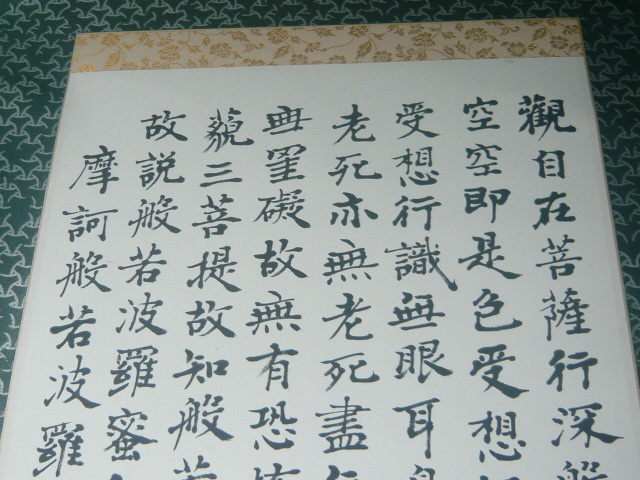 觀自在菩薩行深般
空空即是色受想
受想行識無眼耳鼻
老死亦無老死盡
無罣礙故無有恐
藐三菩提故知般若
故説般若波羅蜜
摩訶般若波羅